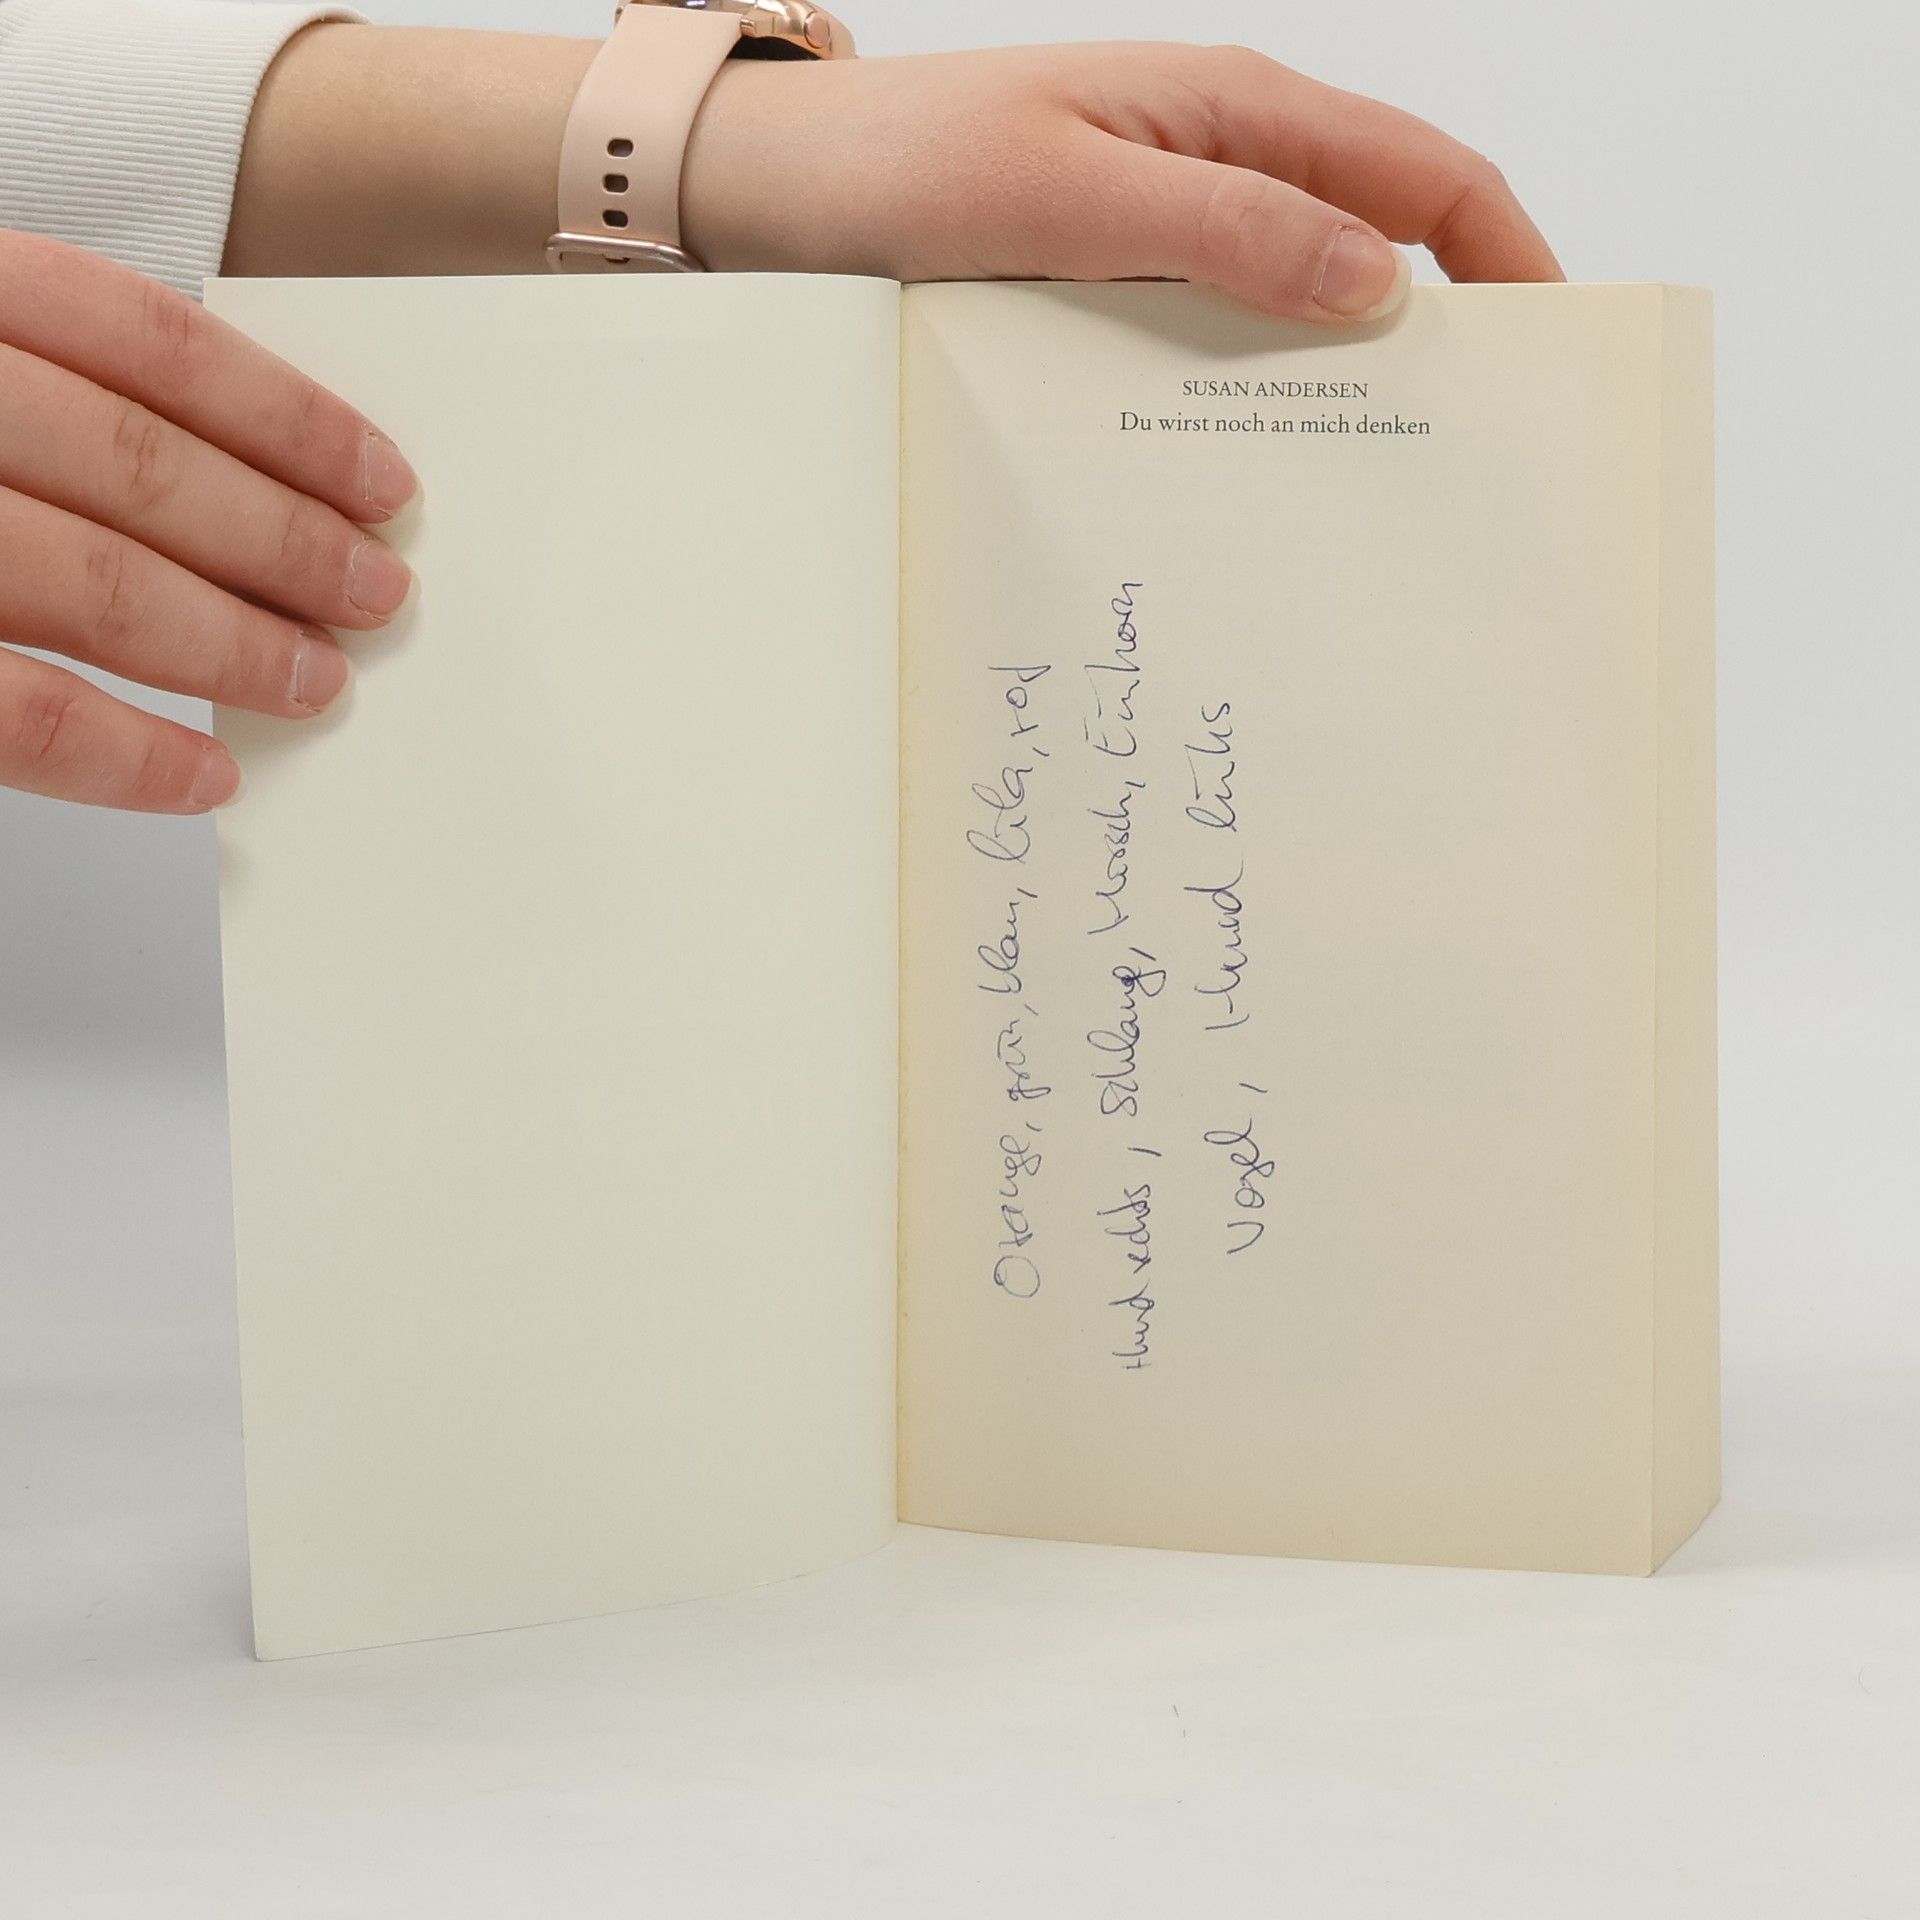 SUSAN ANDERSEN
Du wirst noch an mich denken
Orange, grün, blau, lila, rot
Hund rechts, Schlange, Hirsch, Einhorn
Vogel, Hund links